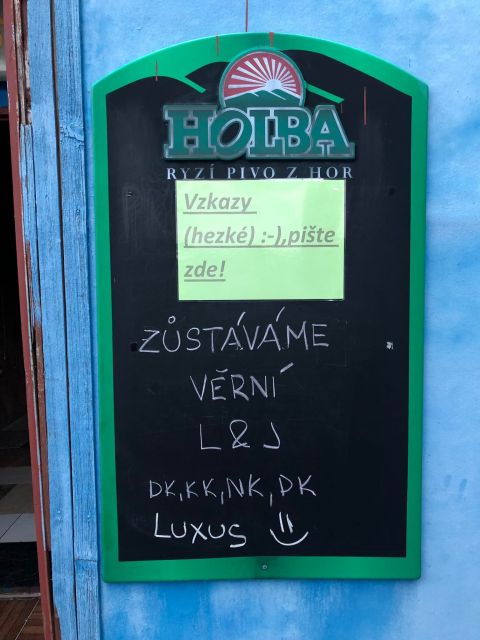 HOLBA
RYZÍ PIVO Z HOR
Vzkazy
(hezké) :-),pište
zde!
ZŮSTÁVÁME
VĚRNÍ
L & J
DK, KK, NK, PK
LUXUS =)